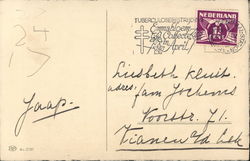 24
17
TUBERCULOSEBESTRIJDING
Emmabloem
Collecte
April
NEDERLAND
1½
CENT
Liesbeth Kluit.
adres: fam Jochems
Jaap.
Voorstr. 71.
Vianen a/d Lek